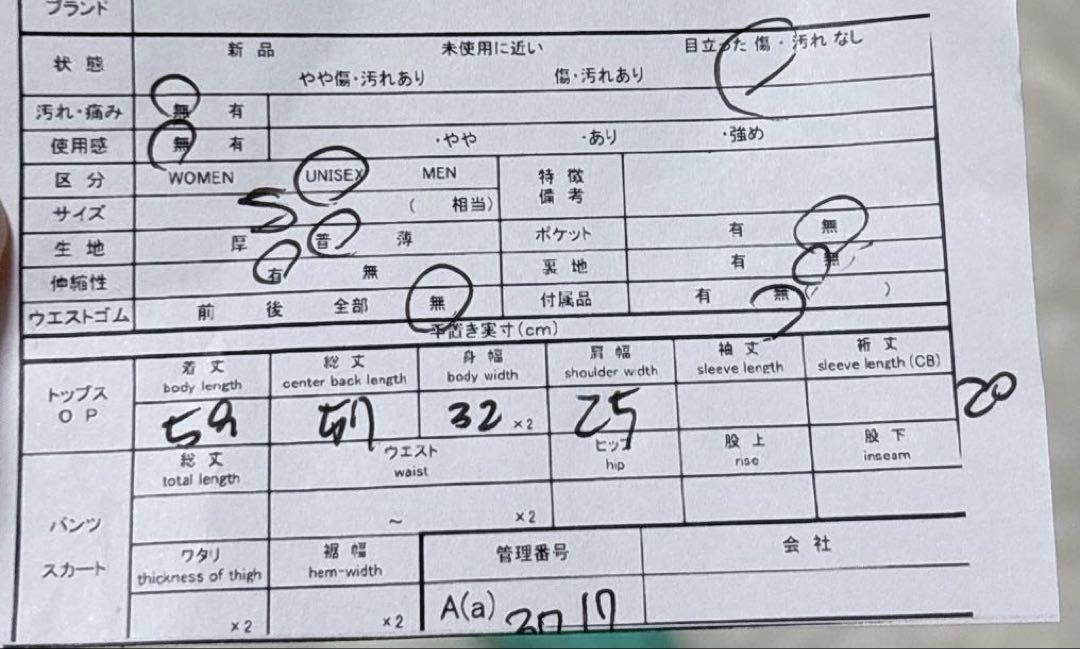 ブランド
状態 新品 未使用に近い 目立った傷・汚れなし
やや傷・汚れあり 傷・汚れあり
汚れ・痛み 無 有
使用感 無 有 ・やや ・あり ・強め
区分 WOMEN UNISEX MEN 特徴
備考
サイズ S ( 相当)
生地 厚 普 薄 ポケット 有 無
伸縮性 有 無 裏地 有 無
ウエストゴム 前 後 全部 無 付属品 有 無 ( )
平置き実寸(cm)
トップス
OP
着丈 総丈 身幅 肩幅 袖丈 裄丈
body length center back length body width shoulder width sleeve length sleeve length (CB)
59 57 32 ×2 25 20
総丈 ウエスト ヒップ 股上 股下
total length waist hip rise inseam
パンツ ～ ×2
スカート
ワタリ 裾幅 管理番号 会社
thickness of thigh hem-width
×2 ×2 A(a)